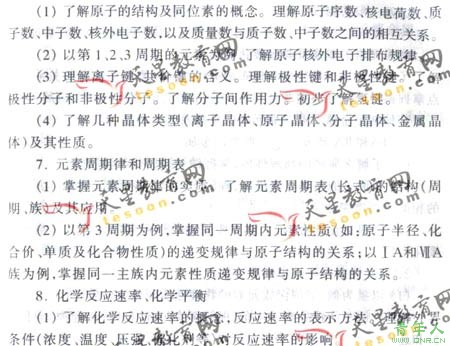 (1) 了解原子的结构及同位素的概念。理解原子序数、核电荷数、质
子数、中子数、核外电子数,以及质量数与质子数、中子数之间的相互关系。
(2) 以第1、2、3周期的元素为例,了解原子核外电子排布规律。
(3) 理解离子键、共价键的含义。理解极性键和非极性键。
极性分子和非极性分子。了解分子间作用力。初步了解氢键。
(4) 了解几种晶体类型(离子晶体、原子晶体、分子晶体、金属晶
体)及其性质。
7. 元素周期律和周期表
(1) 掌握元素周期律的实质。了解元素周期表(长式)的结构(周
期、族)及其应用。
(2) 以第3周期为例,掌握同一周期内元素性质(如:原子半径、化
合价、单质及化合物性质)的递变规律与原子结构的关系;以ⅠA和ⅦA
族为例,掌握同一主族内元素性质递变规律与原子结构的关系。
8. 化学反应速率、化学平衡
(1) 了解化学反应速率的概念,反应速率的表示方法,理解外界
条件(浓度、温度、压强、催化剂等)对反应速率的影响
天星教育网
tesoon.com
天星教育网
tesoon.com
天星教育网
tesoon.com
天星教育网
tesoon.com
青年人
WWW.QNR.CN